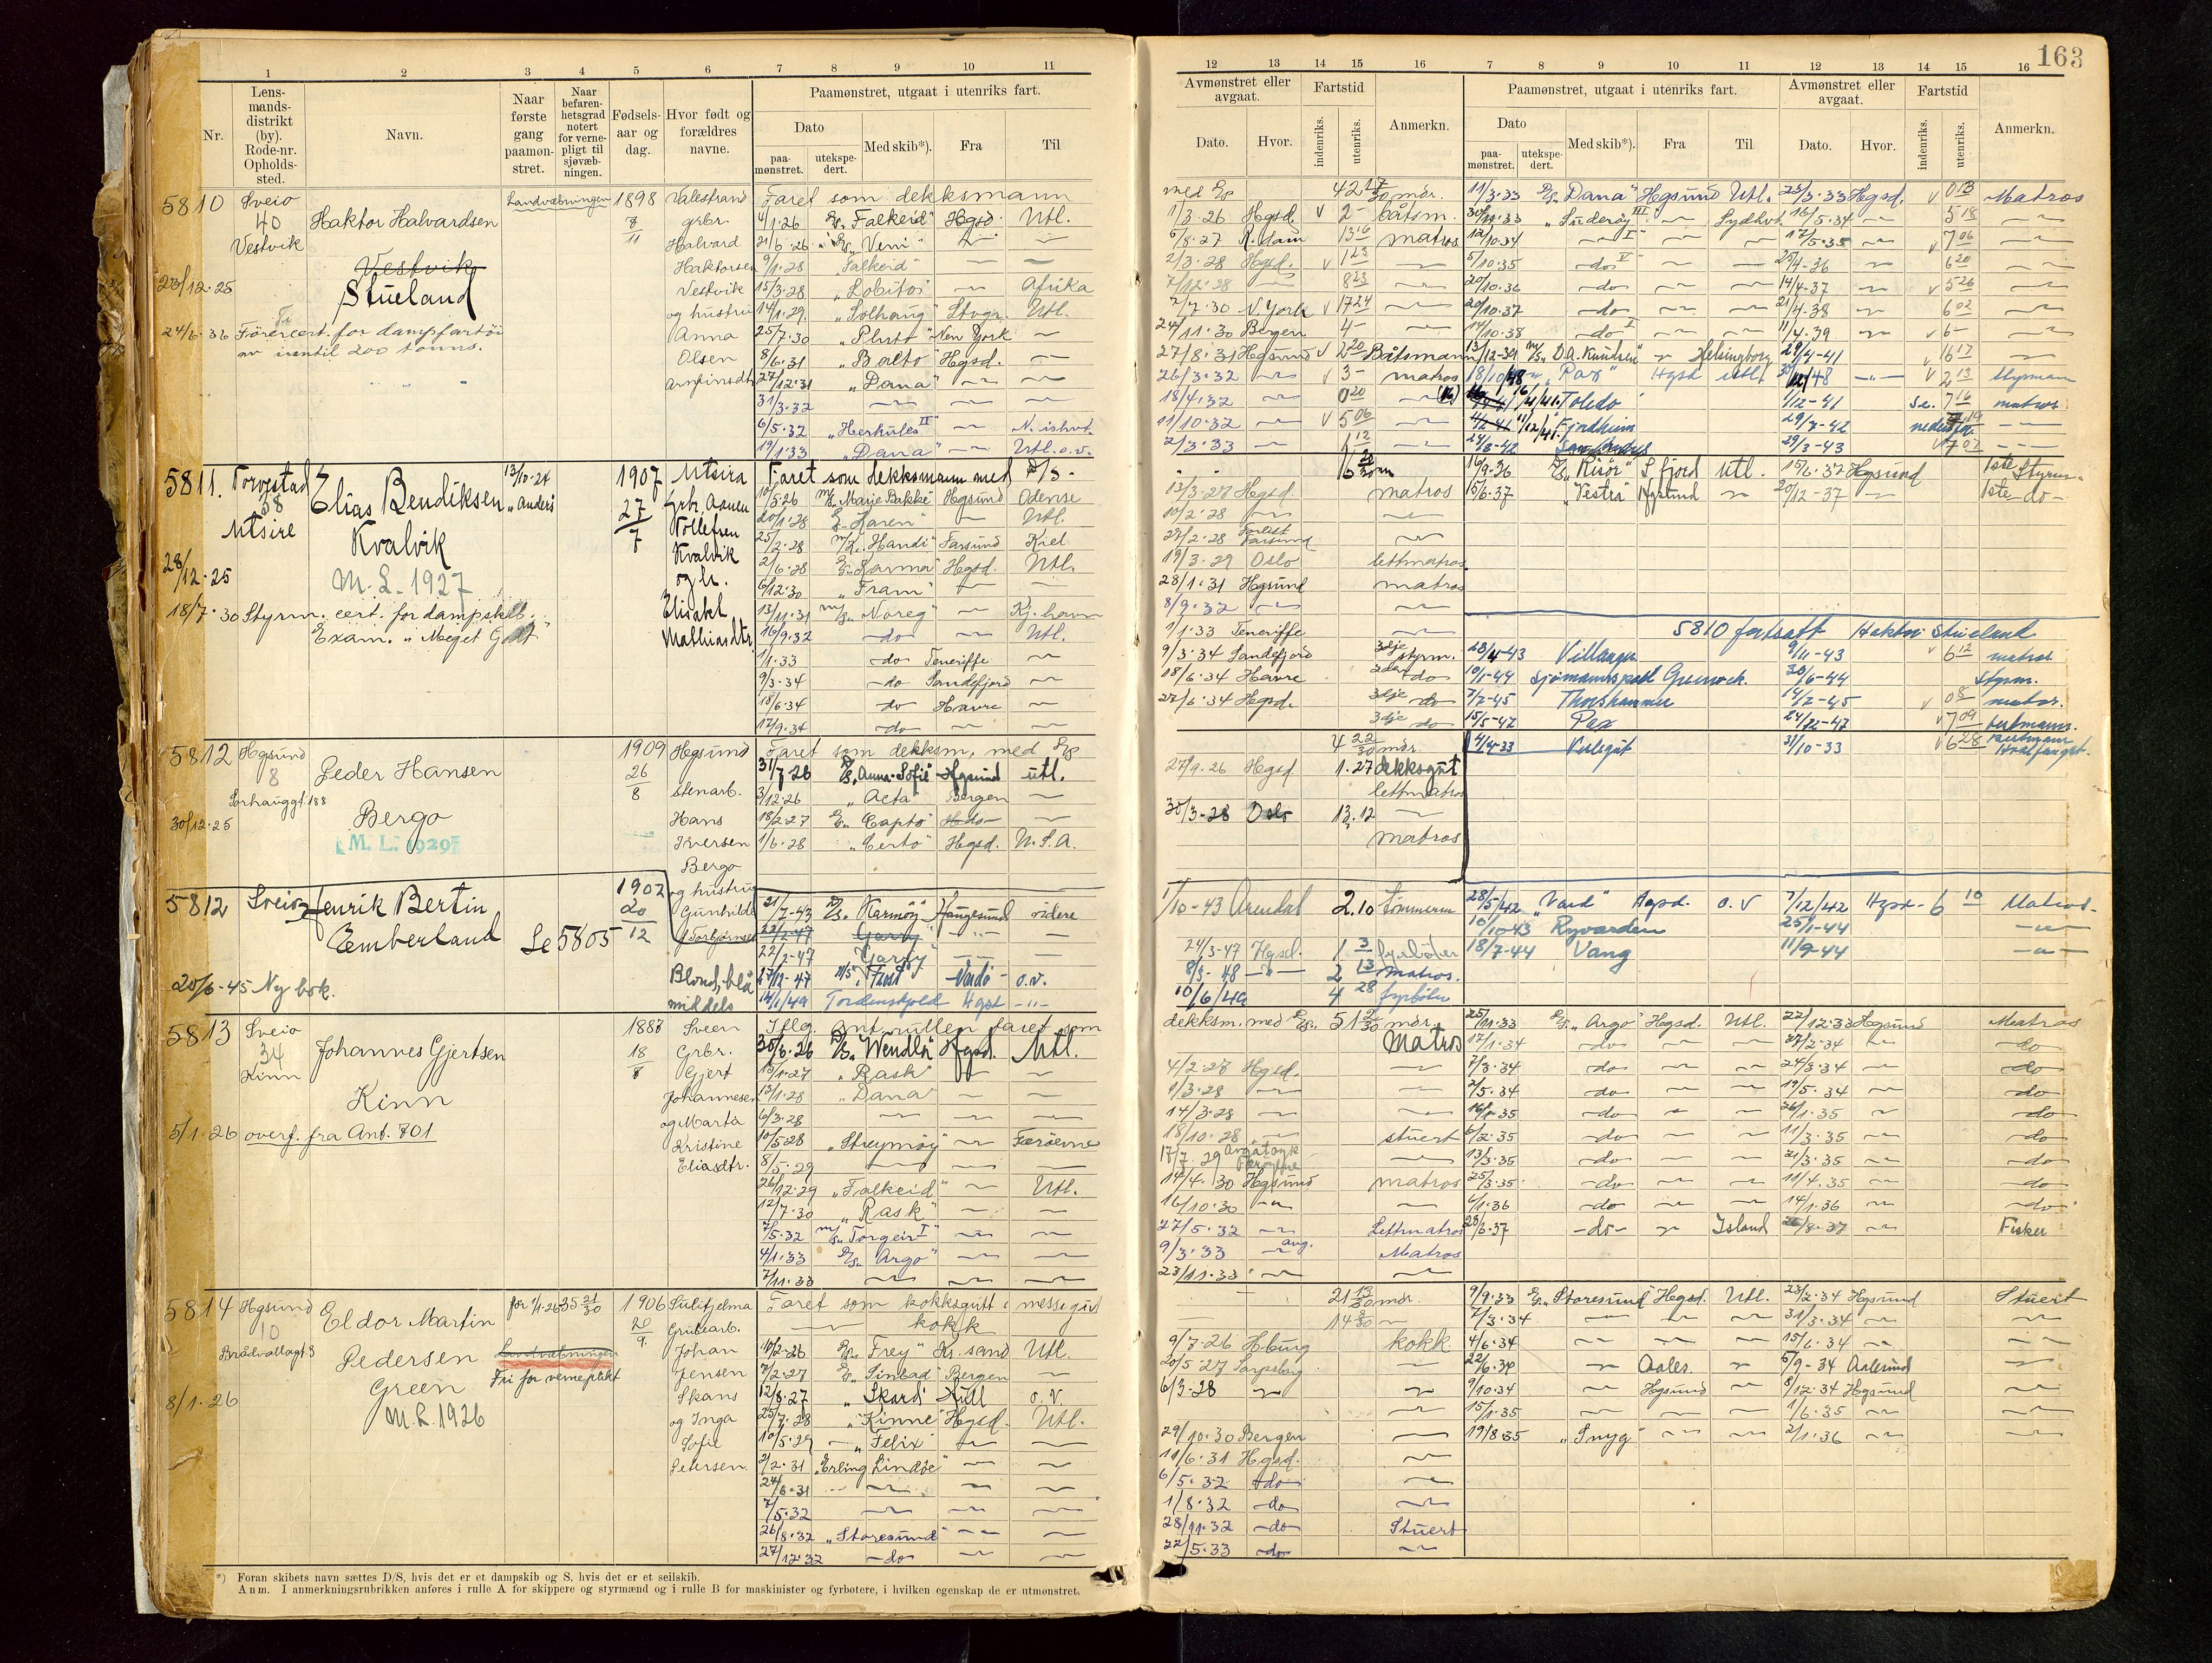 163
1 2 3 4 5 6 7 8 9 10 11
Nr.
Lens-
mands-
distrikt
(by).
Rode-nr.
Opholds-
sted.
Navn.
Naar
første
gang
paamøn-
stret.
Naar
befaren-
hetsgrad
notert
for verne-
pligt til
sjøvæb-
ningen.
Fødsels-
aar og
dag.
Hvor født og
forældres
navne.
Paamønstret, utgaat i utenriks fart.
Dato
paa-
mønstret.
utekspe-
dert.
Med skib*).
Fra
Til
5810 Sveio
40
Vestvik
Haktor Halvardsen
Vestvik
Stueland
Landvæbningen
1898
8
11
Valestrand
grbr.
Halvard
Haktorsen
Vestvik
og hustru
Anna
Olsen
23/12.25
24/6.36 Førercert. for dampfartøi
av inntil 200 tonns.
Faret som dekksmann
4/1.26 "Falkeid" Hgsd. Utl.
21/6.26 "Veni"
9/1.28 "Falkeid"
15/3.28 "Lobitos" Afrika
14/1.29 "Solhaug" Stvgr. Utl.
25/7.30 "Pluto" New York
8/6.31 "Balto" Hgsd.
27/12.31 "Dana"
31/3.32
6/5.32 "Herkules II" N. ishvt.
19/1.33 "Dana" Utl. o.v.
5811. Torvestad
38
Utsire
Elias Bendiksen "Anders"
Kvalvik
M.L. 1927
13/10-24
1907
27
7
Utsira
Grbr. Aanen
Tollefsen
Kvalvik
og h.
Elisabet
Mathiasdtr.
28/12.25
18/7.30 Styrm. cert. for dampskib.
Exam. "Meget Godt"
Faret som dekksmann med D/S.
10/5.26 "Marie Bakke" Hgsund Odense
20/1.28 "Karen" Utl.
25/2.28 "Handi" Farsund Kiel
2/6.28 "Karma" Hgsd. Utl.
6/12.30 "Fram"
13/11.31 "Noreg" Kj.havn
16/9.32 do Utl.
1/1.33 do Teneriffe
9/3.34 do Sandefjord
18/6.34 do Havre
17/9.34 do
5812 Hgsund
8
Sørhauggt. 188
Peder Hansen
Bergo
M. L. 1929
30/12.25
1909
26
8
Hgsund
stenarb.
Hans
Iversen
Bergo
og hustru
Gunhilde
Torbjørnsd
Faret som dekksm. med
31/7.26 "Anna-Sofie" Hgsund utl.
3/12.26 "Acta" Bergen
18/2.27 "Capto" do
1/6.28 "Certo" Hgsd. U.S.A.
5812 Sveio
Henrik Bertin
Emberland
Se 5805
1902
20
12
20/6-45 Ny bok.
Blond, blå
middels
21/7-43 "Karmøy" Haugesund videre
22/2-47 Garby
22/2-47 "Garby"
17/12-47 "Frost" Vadsø o.v.
14/1/49 Tordenskjold Hgsd
5813 Sveio
34
Kinn
Johannes Gjertsen
Kinn
1887
18
8
Sveen
Grbr.
Gjert
Johannesen
og Marta
Kristine
Eliasdtr.
5/1.26 overf. fra Ant. 701
Iflg. ant. rullen faret som
30/6.26 "Wendla" Hgsd. Utl.
15/1.27 "Rask"
13/1.28 "Dana"
6/3.28
10/5.28 "Streymøy" Færøerne
8/5.29
26/12.29 "Falkeid" Utl.
12/7.30 "Rask"
7/5.32 "Torgeir I"
4/1.33 "Argo"
7/11.33
5814 Hgsund
10
Brådvallagt 3
Eldor Martin
Pedersen
Green
M.L. 1926
Landvæbningen
Fri for verneplikt
1906
20
9
Sulitjelma
Grubearb.
Johan
Jensen
Skans
og Inga
Sofie
Petersen
8/1.26
Faret som kokksgutt i messegut
kokk
10/2.26 "Frey" Kr. sand Utl.
7/2.27 "Sinbad" Bergen
12/8.27 "Skard" Hull o.v.
25/7.28 "Kinne" Hgsd. Utl.
10/5.29 "Felix"
2/2.31 "Erling Lindøe"
24/6.31
7/5.32
26/8.32 "Storesund"
27/12.32 do
*) Foran skibets navn sættes D/S, hvis det er et dampskib og S, hvis det er et seilskib.
Anm. I anmerkningsrubrikken anføres i rulle A for skippere og styrmænd og i rulle B for maskinister og fyrbøtere, i hvilken egenskap de er utmønstret.
12 13 14 15 16 7 8 9 10 11 12 13 14 15 16
Avmønstret eller
avgaat.
Dato. Hvor.
Fartstid
indenriks. utenriks.
Anmerkn.
Paamønstret, utgaat i utenriks fart.
Dato
paa-
mønstret.
utekspe-
dert.
Med skib*).
Fra
Til
Avmønstret eller
avgaat.
Dato. Hvor.
Fartstid
indenriks. utenriks.
Anmerkn.
42 17/30 mdr. 11/3.33 "Dana" Hgsund Utl. 23/3.33 Hgsd. 0 13 Matros
1/3.26 Hgsd. 2 båtsm. "Suderøy III" Sydhvt. 16/5.34 5 18
6/8.27 R.dam 13 16 matros 12/10.34 I 17/5.35 7 06
2/3.28 Hgsd. 1 23 5/10.35 do V 25/4-36 6 20
7/12.28 8 23 20/10.36 do 14/4-37 5 26
2/7.30 N.York 17 24 20/10.37 do 21/4-38 6 02
24/11.30 Bergen 4 14/10.38 do I 11/4.39 6
27/8.31 Hgsund 2 20 Båtsmann "D.A. Knudsen" Helsingborg 29/4-41 16 17
26/3.32 3 matros 18/10/48 "Pax" Hgsd utl. 48 2 13 styrman
18/4.32 0 20 Toledo 1/12-41 7 16 matros
11/10.32 5 06 Fjordheim 29/7-42
2/3.33 1 12 24/8-42 29/3-43 7 02
16/9.36 "Risør" S.fjord Utl. 15/6.37 Hgsund 1ste Styrm.
13/3.27 Hgsd matros 15/6.37 "Vestra" Hgsund 20/12-37 1ste do
10/2.28
27/2.28 Forlist
Farsund
19/3.29 Oslo lettmatros
28/1.31 Hgsund matros
8/9.32
5810 fortsatt Haktor Stueland
1/1.33 Teneriffe
9/3.34 Sandefjord 3dje styrm. 28/4-43 Villanger 9/11-43 6 12 matros
18/6.34 Havre 2den do 10/1-44 Greenock. 30/6-44 styrm.
27/6.34 Hgsd. 3dje do 7/2-45 Thorshammer 14/2-45 08 matros.
3dje do 15/5-47 Pax 7 09
4 22/30 mdr. 31/10-33 6 28
Hvalfangst.
27/9.26 Hgsd 1.27 dekksgut
lettmatros
30/3-28 Oslo 13.12
matros
1/10-43 Arendal 2.10 28/5/42 "Vard" Hgsd. o.v 7/12/42 Hgsd. 6 10 Matros
10/10-43 Ryvarden 25/1-44
24/3-47 Hgsd. 1 3 fyrbøter 18/7-44 Vang 11/9-44
8/3-48 2 13 matros.
10/6/49 4 28 fyrbøter
dekksm. med 51 2/30 mdr. 25/11.33 "Argo" Hgsd. Utl. 22/12.33 Hgsund Matros
Matros 17/1.34 do 27/2.34 do
4/2.27 Hgsd. 7/3.34 do 24/3.34 do
1/3.28 2/5.34 do 19/5.34 do
14/3.28 16/1.35 do 26/1.35 do
18/10.28 stuert 6/2.35 do 11/3.35 do
17/7.29 13/3.35 do 21/3.35 do
14/4.30 Hgsund matros 25/3.35 do 11/4.35 do
16/10.30 6/1.36 do 14/1.36 do
27/5.32 Lettmatros 23/6.37 do Island /8.37 Fisker
9/3.33 avg. Matros
23/11.33
21 13/30 mdr. 9/9.33 "Storesund" Hgsd. Utl. 23/2.34 Hgsund Stuert
14 8/30 7/3.34 31/3.34
9/7.26 H.burg kokk 4/6.34 15/6.34
20/5 27 Sarpsborg 22/6.34 Aales. 5/9-34 Aalesund
6/3-28 9/10.34 Hgsund 8/12.34 Hgsund
15/1.35 1/6.35
29/10.30 Bergen 19/8.35 "Snyg" 2/1.36
11/6.31 Hgsd.
6/5.32 do
1/8.32 do
28/11.32 do Stuert
22/5.33 do